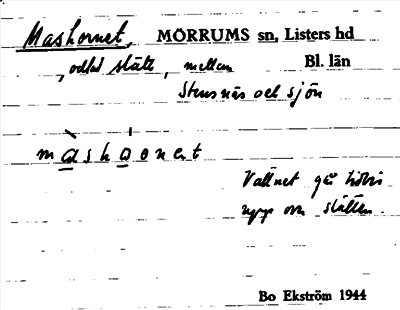 Mashornet, MÖRRUMS sn, Listers hd
, odlad slätt, mellan Bl. län
Stensnäs och sjön
mashoonet
Vattnet går
upp över slätten.
Bo Ekström 1944